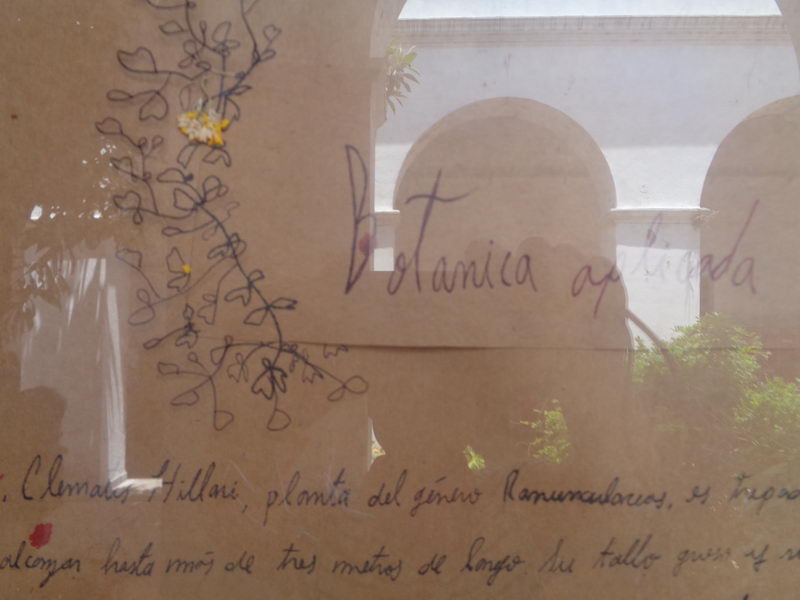 Botanica aplicada
. Clematis Hillari, planta del género Ranunculareas, es trepad
alcanzar hasta más de tres metros de largo. Su tallo grueso y